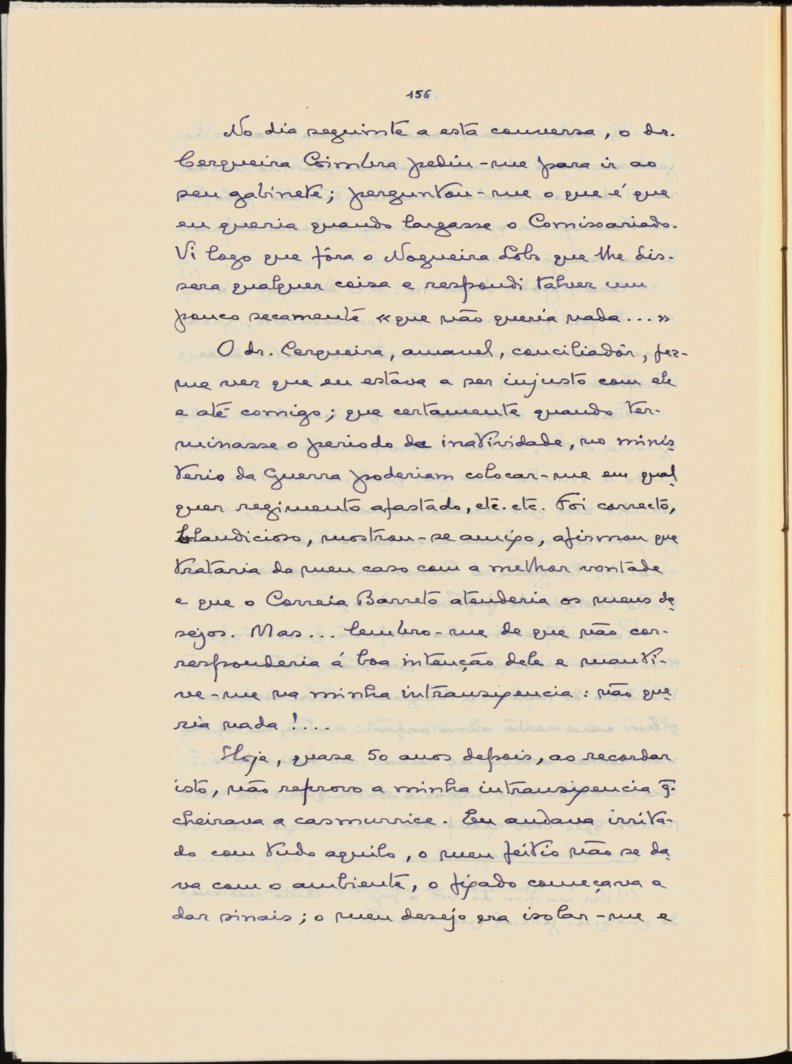 156
No dia seguinte a esta conversa, o dr.
Cerqueira Coimbra pediu-me para ir ao
seu gabinete; perguntou-me o que é que
eu queria quando largasse o Comissariado.
Vi logo que fôra o Nogueira Lobo que lhe dis-
sera qualquer coisa e respondi talvez um
pouco secamente «que não queria nada...»
O dr. Cerqueira, amavel, conciliadôr, fez-
me ver que eu estava a ser injusto com ele
e até comigo; que certamente quando ter-
minasse o periodo da inatividade, no minis-
terio da Guerra poderiam colocar-me em qual-
quer regimento afastado, etc. etc. Foi correcto,
blandicioso, mostrou-se amigo, afirmou que
trataria do meu caso com a melhor vontade
e que o Correia Barreto atenderia os meus de-
sejos. Mas... lembro-me de que não cor-
responderia á boa intenção dele e manti-
ve-me na minha intransigencia: não que-
ria nada!...
Hoje, quase 50 anos depois, ao recordar
isto, não reprovo a minha intransigencia q.
cheirava a casmurrice. Eu andava irrita-
do com tudo aquilo, o meu feitio não se da-
va com o ambiente, o figado começava a
dar sinais; o meu desejo era isolar-me e